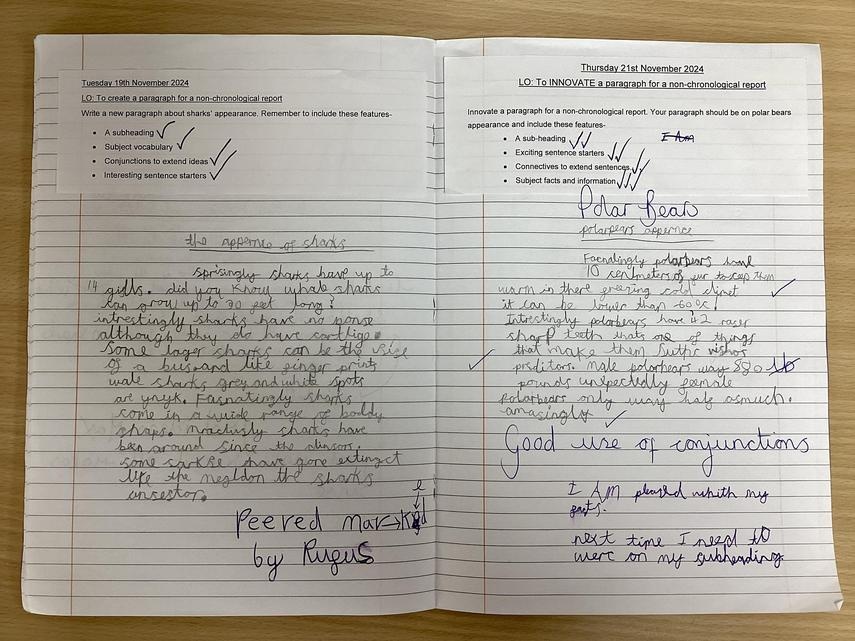 Tuesday 19th November 2024
LO: To create a paragraph for a non-chronological report
Write a new paragraph about sharks' appearance. Remember to include these features-
• A subheading
• Subject vocabulary
• Conjunctions to extend ideas
• Interesting sentence starters
the appernce of sharks
sprisingly sharks have up to
14 gills. did you know whale sharks
can grow up to 30 feet long?
intrestingly sharks have no
although they do have cartlige.
some lager sharks can be the size
of a bus and like finger prints
wale sharks grey and white spots
are ynyk. Fasnatingly sharks
come in a wide range of boddy
shaps. sharks have
been around since the
some have gone extingct
like the megldon the sharks
ansestor.
Peered mar→ked
by Rufus
Thursday 21st November 2024
LO: To INNOVATE a paragraph for a non-chronological report
Innovate a paragraph for a non-chronological report. Your paragraph should be on polar bears
appearance and include these features-
• A sub-heading
• Exciting sentence starters
• Connectives to extend sentences
• Subject facts and information
I Am
Polar Bears
polarbears appernce
polarbears have
10 centmeters of fur to ceep them
warm in there freezing cold climet
it can be lower than -60°c!
Intrestingly polarbears have 42 racer
sharp teeth thats one of things
that make them
preditors. Male polarbears way 880 lb
pounds unexpectedly female
polarbears only way half asmuch.
amasingly
Good use of conjunctions
I AM pleased whith my
facts.
next time I need to
werc on my subheading